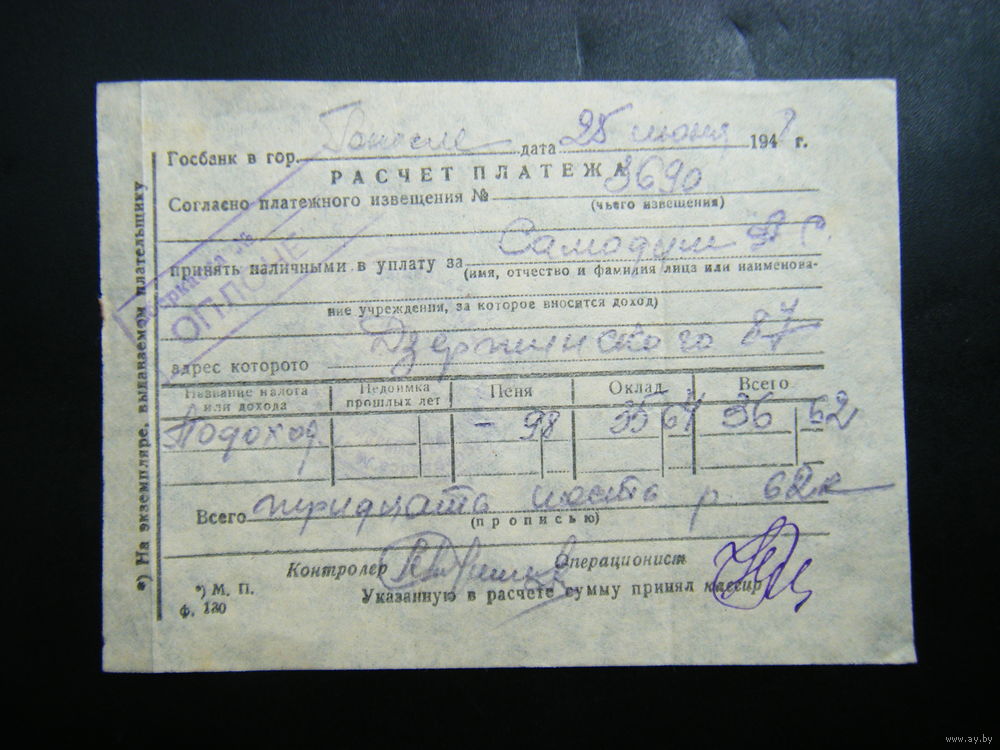 Госбанк в гор. Гомеле дата 25 июня 1948 г.
РАСЧЕТ ПЛАТЕЖА
Согласно платежного извещения № 3690
(чьего извещения)
принять наличными в уплату за
(имя, отчество и фамилия лица или наименова-
ние учреждения, за которое вносится доход)
Дзержинского 87
адрес которото
Название налога или дохода Недоимка прошлых лет Пеня Оклад Всего
Подоход - 98 35 64 36 62
Всего тридцать шесть р 62к
(прописью)
Контролер Операционист
*) М. П. Указанную в расчете сумму принял кассир
Ф. 130
*) На экземпляре, выдаваемом плательщику
www.ay.by